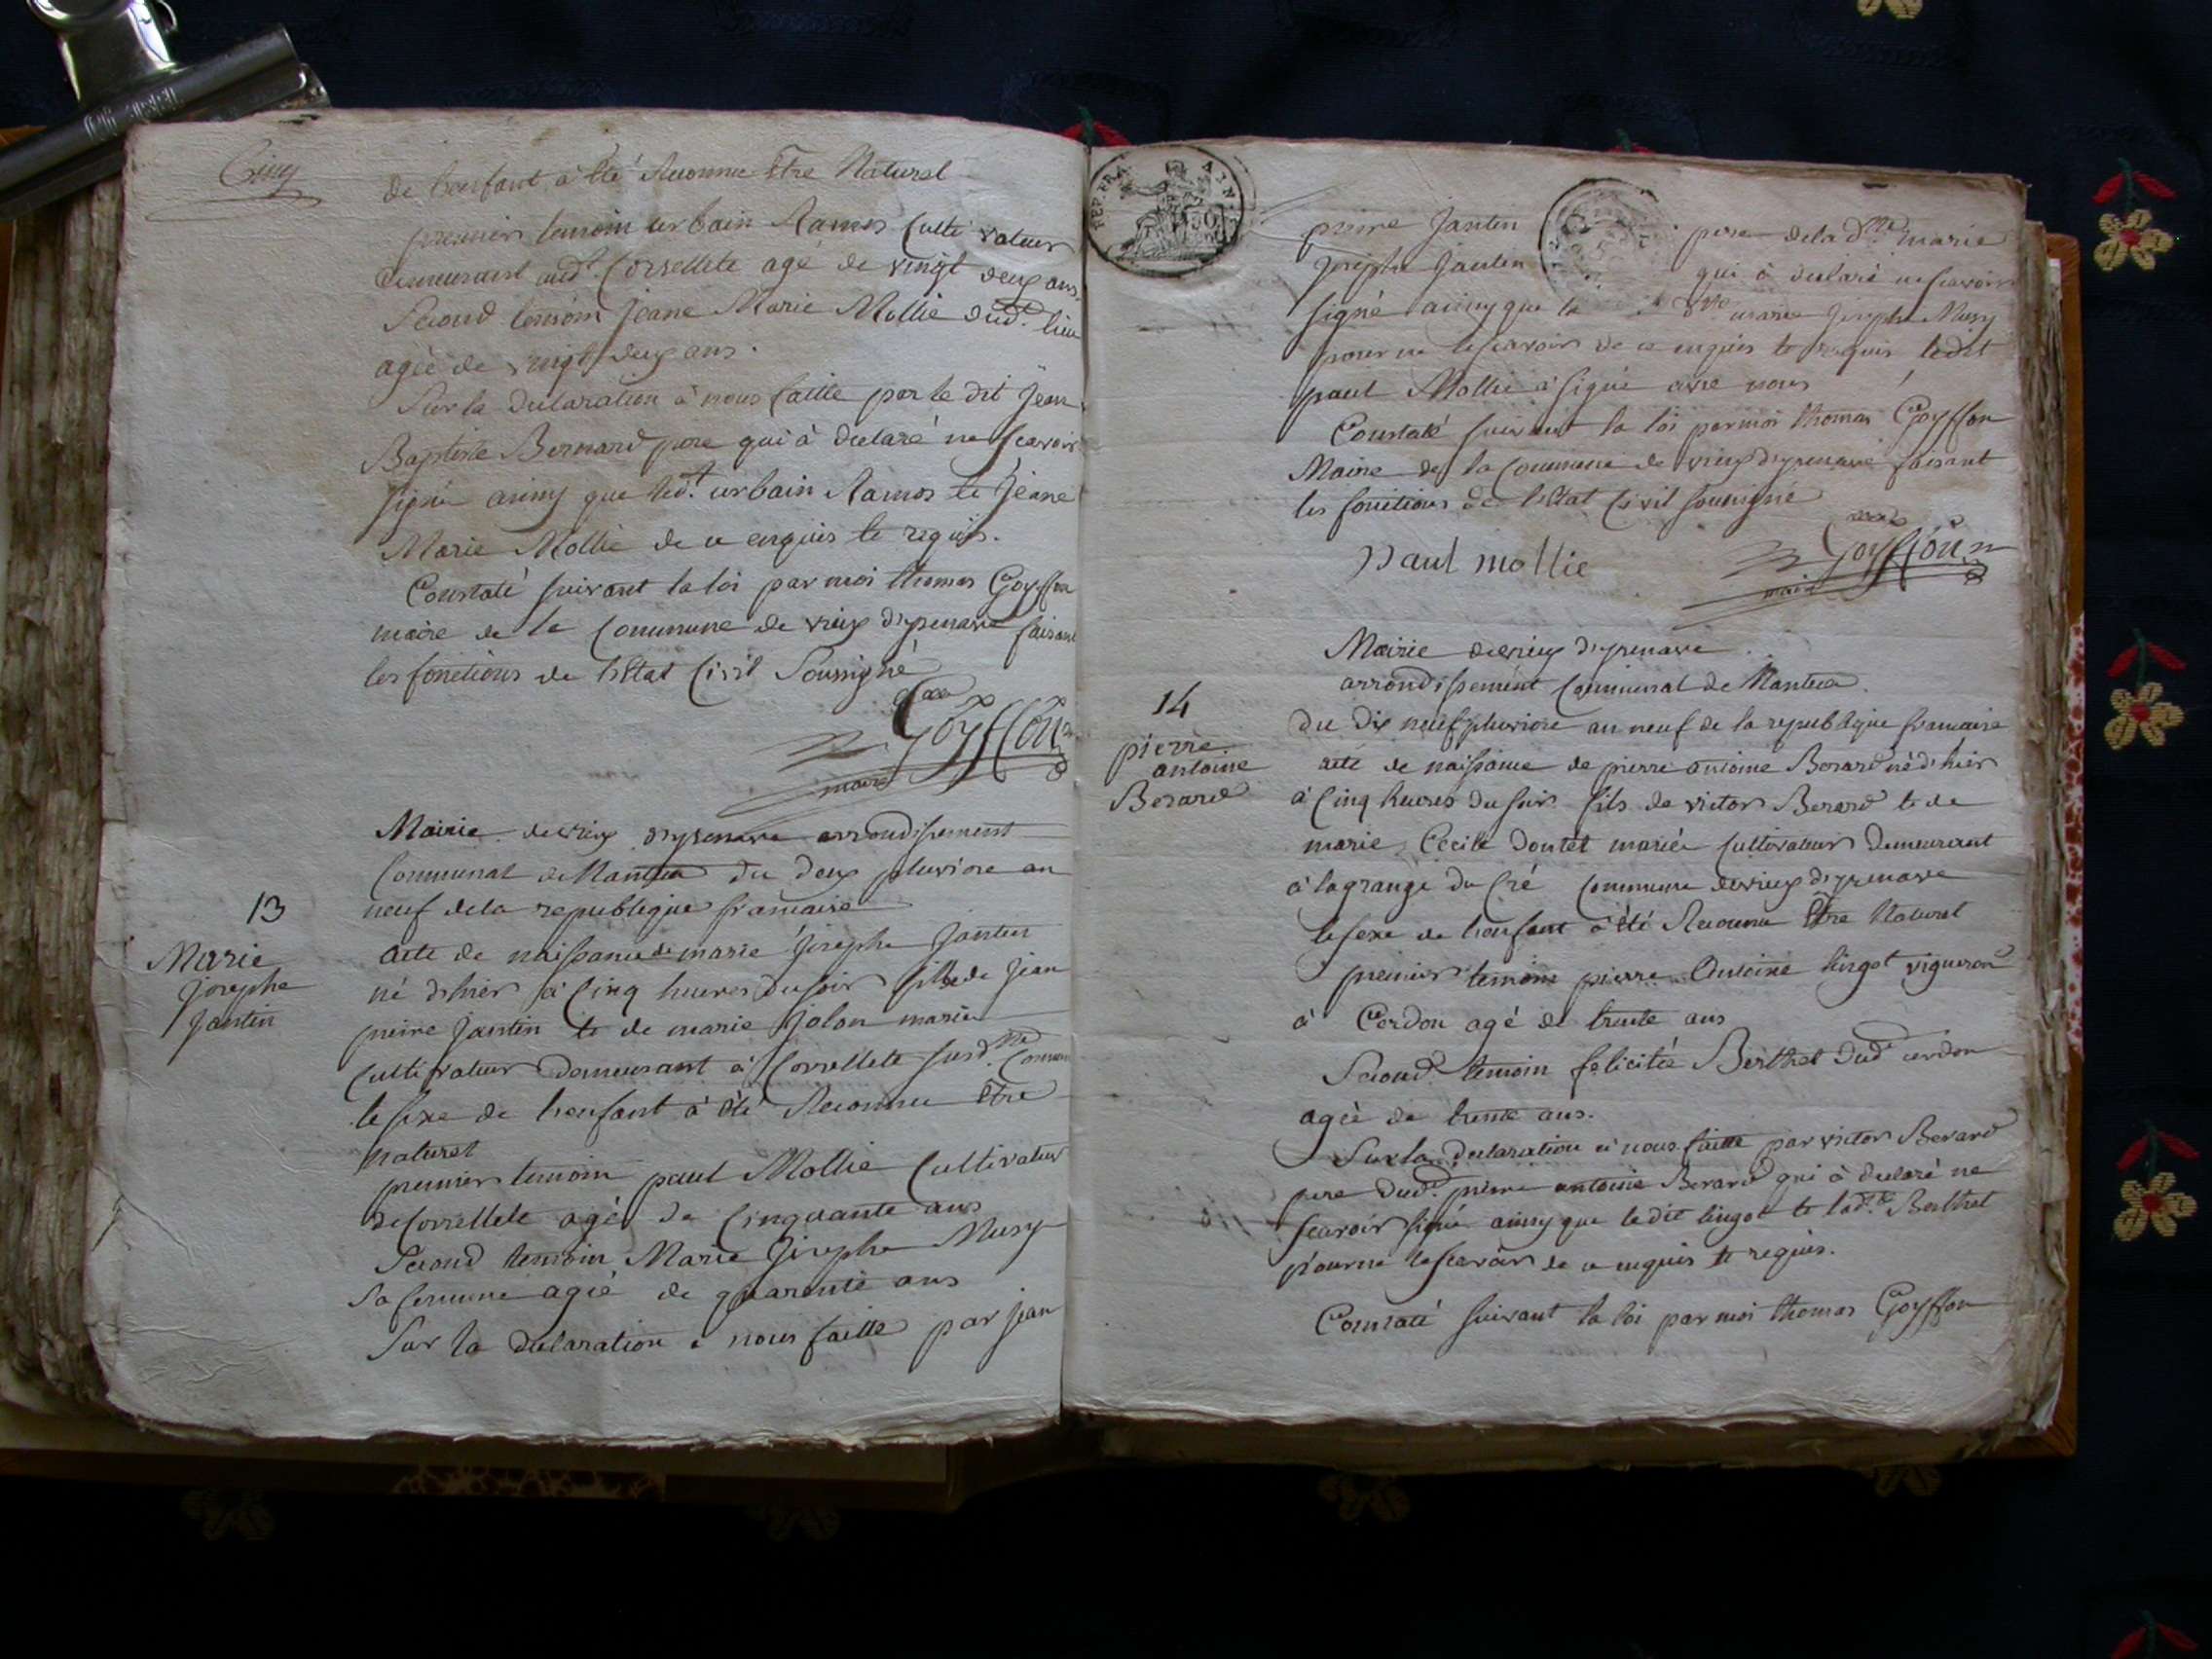 Cinq
de lenfant à Eté Reconnu Etre Naturel
premier temoin urbain Ramos Cultivateur
demeurant aud.t Correllete agé de vingt deux ans
Second temoin Jeane Marie Mollie dud.t lieu
agée de vingt deux ans.
Sur la declaration à nous faitte par le dit Jean
Baptiste Bernard pere qui à declaré ne scavoir
signé ainsy que led.t urbain Ramos te Jeane
Marie Mollie de ce enquis te requis.
Constaté suivant la loi par moi thomas Goyffon
maire de la Commune de vieux d'yzenave faisant
les fonctions de letat Civil Soussigné
Goyffon
maire
Mairie de vieux dyzenave arrondissement
Communal de Mantua du deux pluviose an
neuf de la republique francaise
13
Marie
Josephe
Jantin
acte de naissance de marie Josephe Jantin
né dhier à Cinq heures du soir fille de Jean
pierre Jantin te de marie Jolon mariés
Cultivateur demeurant à Correllete susd. Commune
le sexe de lenfant à été Reconnu Etre
naturel
premier temoin paul Mollie Cultivateur
de Correllete agé de Cinquante ans
Second temoin Marie Josephe Musy
Sa femme agée de quarente ans
Sur la declaration à nous faitte par Jean
REP. FRA. AIN.
pierre Jantin pere de la d.lle marie
Josephe Jantin qui à declaré ne scavoir
signé ainsy que la marie Josephe Musy
pour ne le scavoir de ce enquis te requis ledit
paul Mollie à signé avec nous
Constaté suivant la loi par moi thomas Goyffon
Maire de la Commune de vieux d'yzenave faisant
les fonctions de letat Civil soussigné
Paul mollie
Goyffon
maire
Mairie de vieux d'yzenave
arrondissement Communal de Mantua.
14
pierre
antoine
Berard
du dix neuf pluviose an neuf de la republique francaise
acte de naissance de pierre antoine Berard né d'hier
à Cinq heures du soir fils de victor Berard te de
marie Cecile Doutet mariés Cultivateur demeurant
à lagrange du Cré Commune de vieux d'yzenave
le sexe de lenfant à été Reconnu Etre Naturel
premier temoin pierre Antoine lingot vigneron
à Cerdon agé de trente ans
Second temoin felicitée Berthet dud. cerdon
agée de trente ans.
Sur la declaration à nous faitte par victor Berard
pere dud. pierre antoine Berard qui à declaré ne
scavoir signé ainsy que le dit lingot te lad.te Berthet
pour ne le scavoir de ce enquis te requis.
Constaté suivant la loi par moi thomas Goyffon